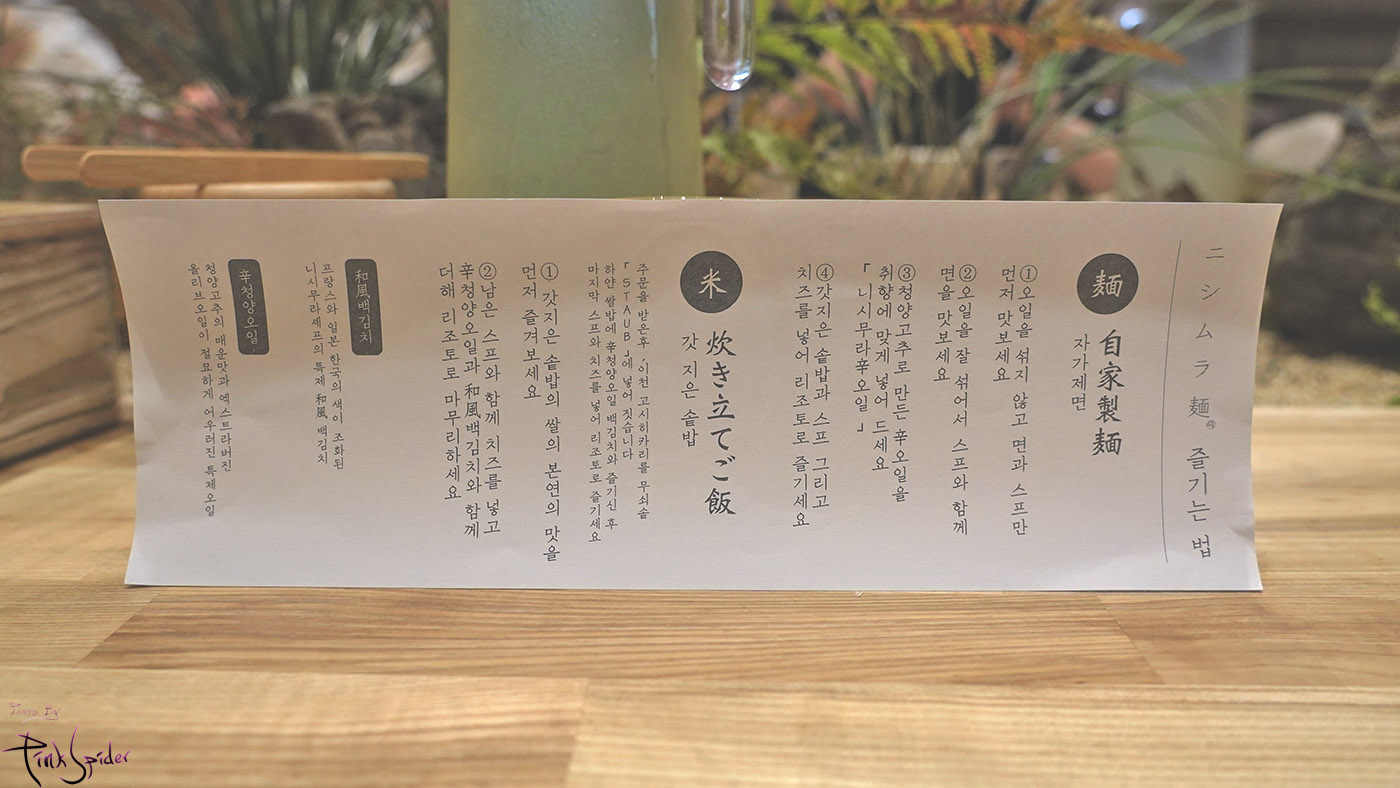 ニシムラ麺 즐기는 법
麺
自家製麺
자가제면
①오일을 섞지 않고 면과 스프만
먼저 맛보세요
②오일을 잘 섞어서 스프와 함께
면을 맛보세요
③청양고추로 만든 辛오일을
취향에 맞게 넣어 드세요
「니시무라辛오일」
④갓지은 솥밥과 스프 그리고
치즈를 넣어 리조토로 즐기세요
米
炊き立てご飯
갓 지은 솥밥
주문을 받은후, 이천 고시히카리를 무쇠솥
「STAUB」에 넣어 짓습니다
하얀 쌀밥에 辛청양오일 백김치와 즐기신 후
마지막 스프와 치즈를 넣어 리조토로 즐기세요
① 갓지은 솥밥의 쌀의 본연의 맛을
먼저 즐겨보세요
②남은 스프와 함께 치즈를 넣고
辛청양오일과 和風백김치와 함께
더해 리조토로 마무리하세요
和風백김치
프랑스와 일본 한국의 색이 조화된
니시무라셰프의 특제 和風 백김치
辛청양오일
청양고추의 매운맛과 엑스트라버진
올리브오일이 절묘하게 어우러진 특제오일
Photo By
PinkSpider